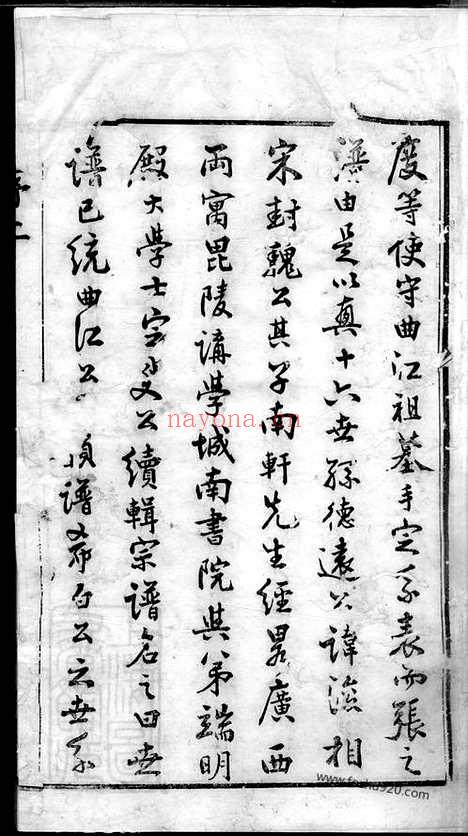 度等使守曲江祖墓手定系表而張之
譜由是以真十六世孫德遠公諱浚相
宋封魏公其子南軒先生經畧廣西
兩寓毘陵講學城南書院其弟端明
殿大學士定叟公續輯宗譜名之曰世
譜已統曲江公 須譜 白公之世系
序二
nayona.cn